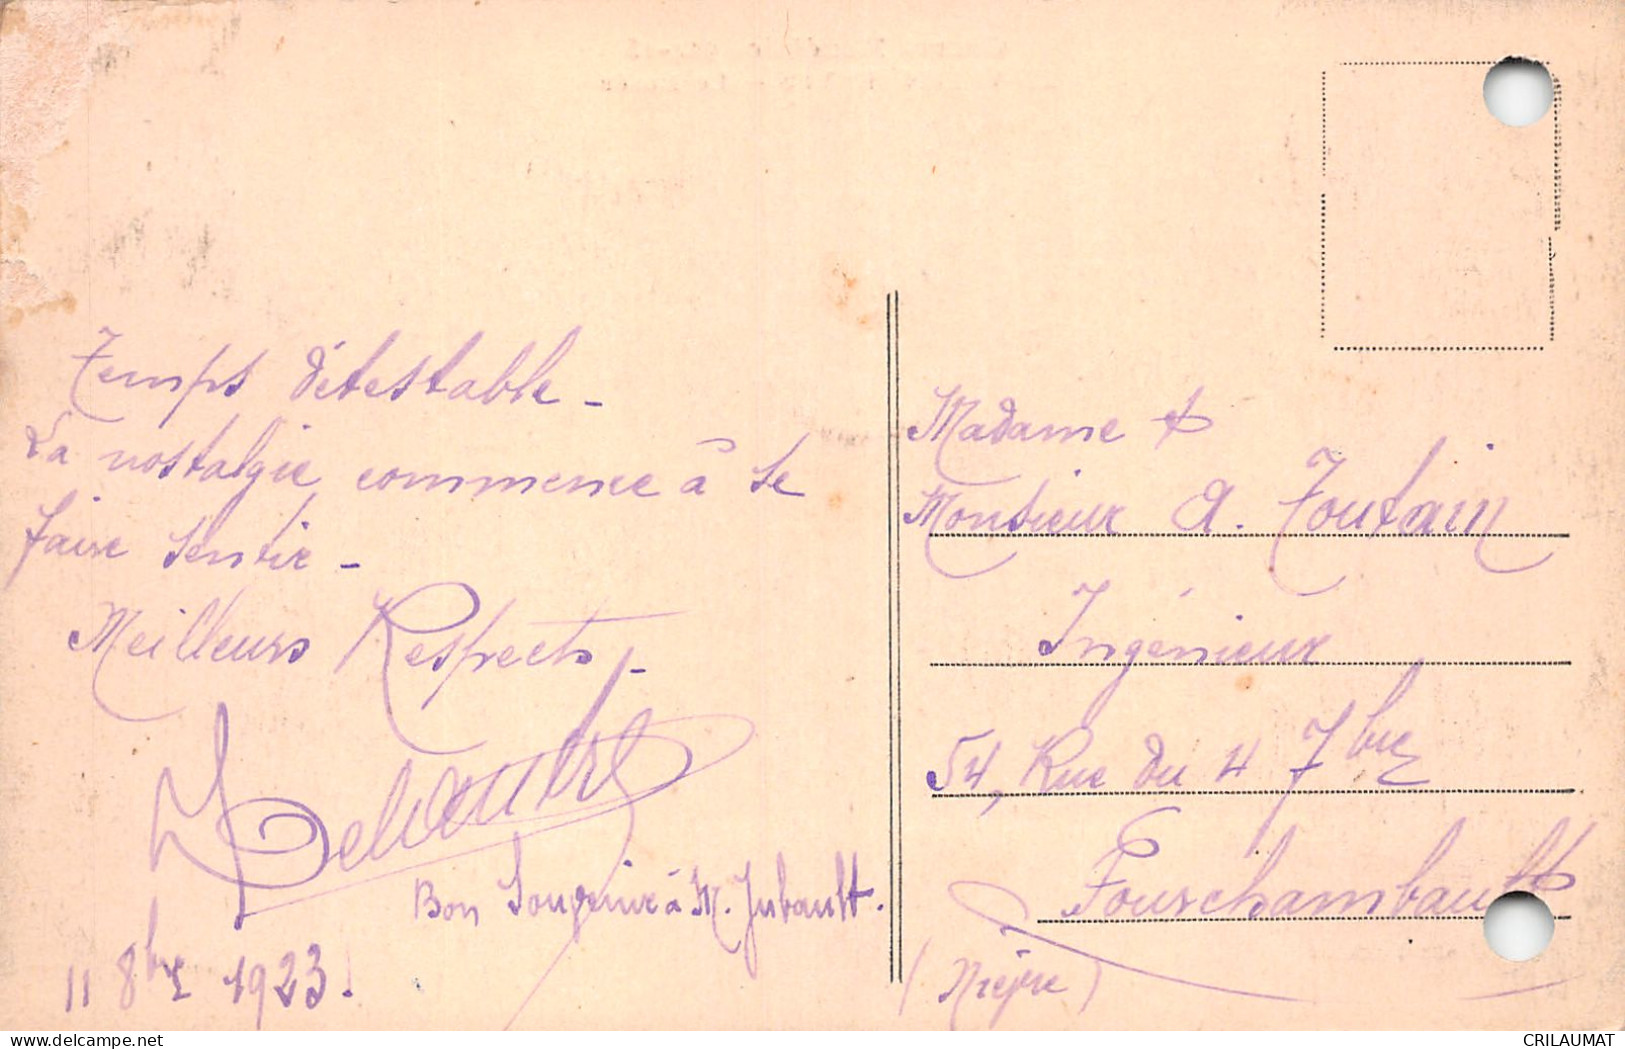 Temps détestable -
La nostalgie commence à se
faire sentir -
Meilleurs Respects -
Bon Souvenir à M. Jubault.
11 8bre 1923.
Madame &
Monsieur A. Toutain
Ingénieur
54, Rue du 4 7bre
Fourchambault
(Nièvre)
delcampe.net
CRILAUMAT